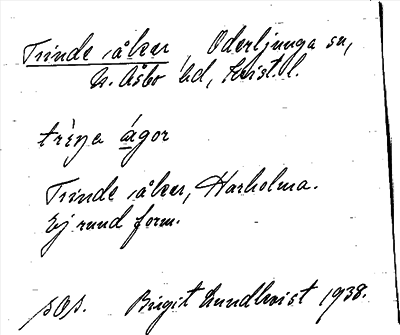 Trinde åker, Oderljunga sn,
N. Åsbo hd, Krist. l.
trìna ágor
Trinde åker, Harholma.
Ej rund form.
pOp. Birgit Lundkvist 1938.